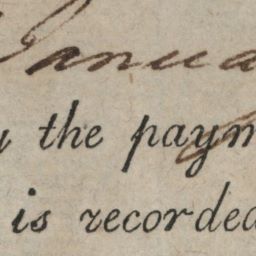 Janua
y the paym
is recorded